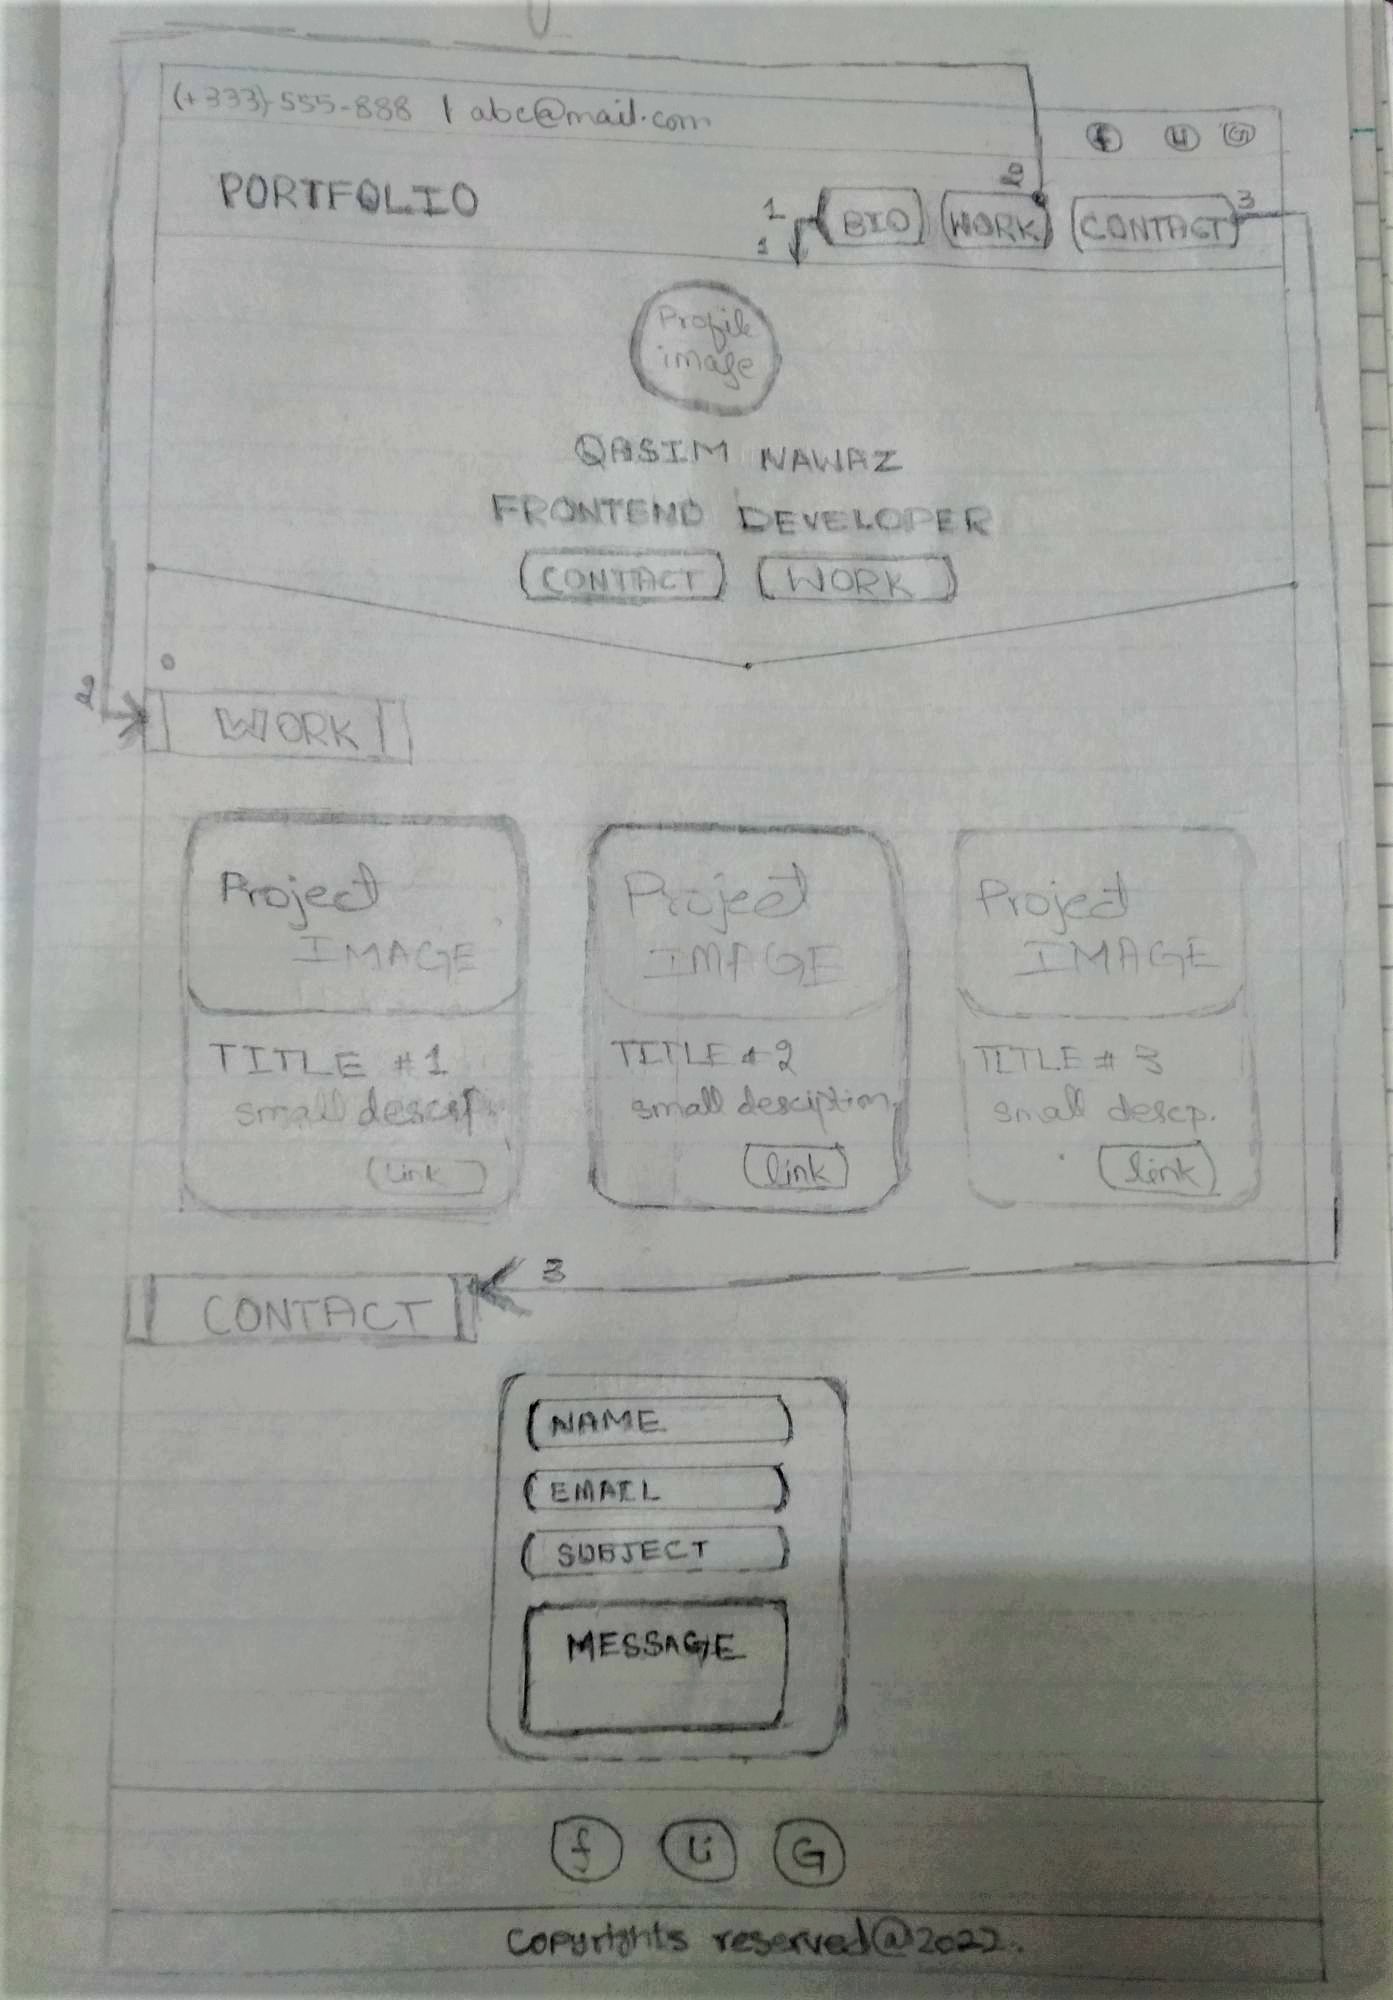 (+333)-555-888 | abc@mail.com
f li G
PORTFOLIO
1 BIO 2 WORK CONTACT 3
1
Profile
image
QASIM NAWAZ
FRONTEND DEVELOPER
CONTACT WORK
2 WORK
Project
IMAGE
TITLE #1
small descrp.
Link
Project
IMAGE
TITLE #2
small desciption
link
Project
IMAGE
TITLE # 3
small descp.
link
3
CONTACT
NAME
EMAIL
SUBJECT
MESSAGE
f li G
Copyrights reserved@2022.